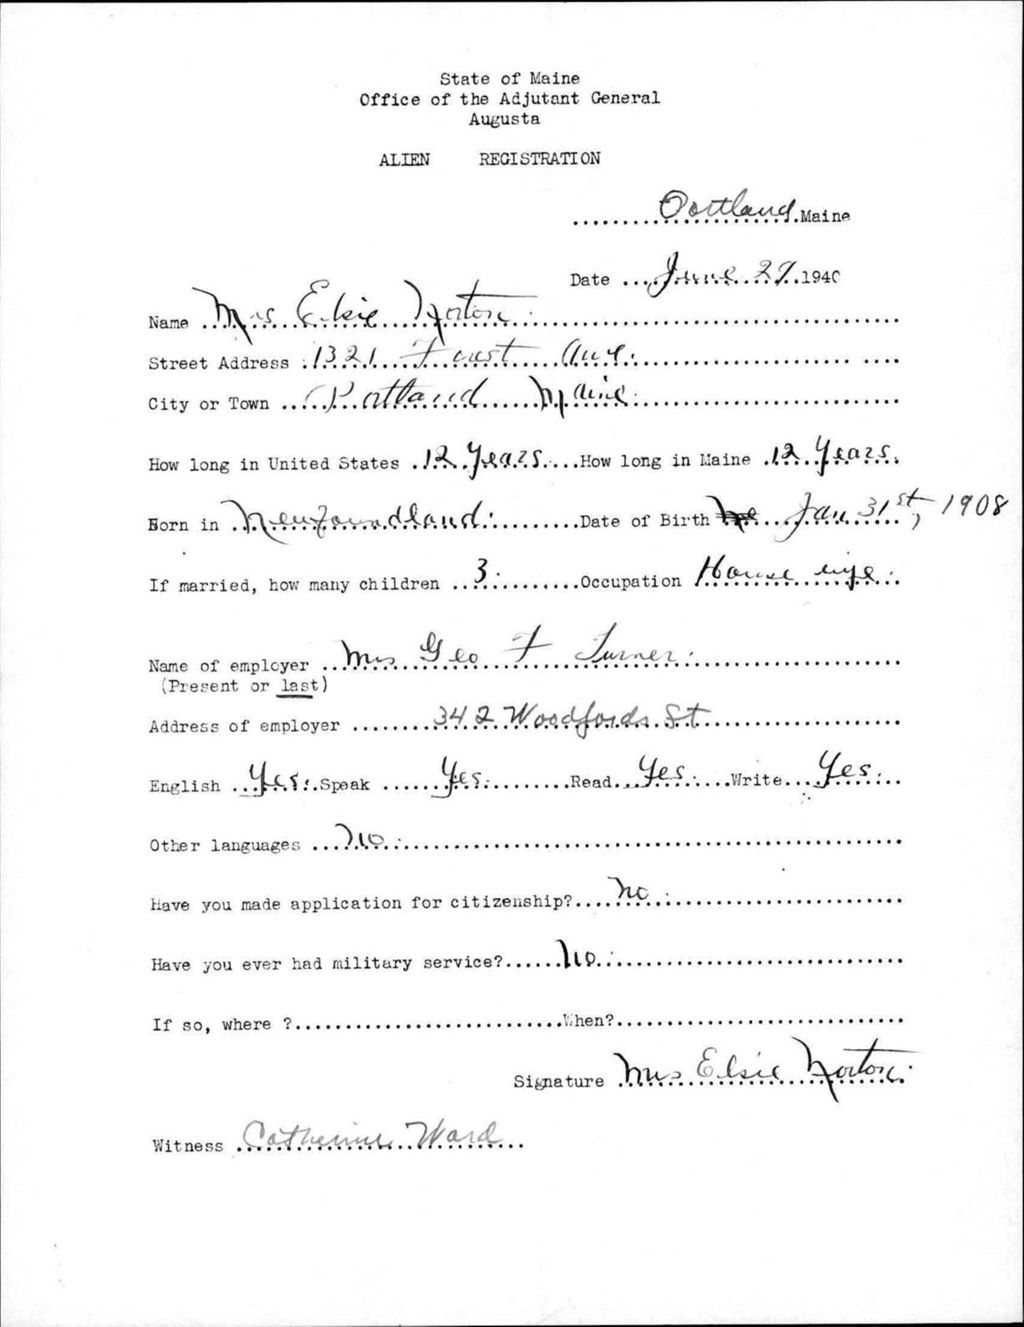 State of Maine
Office of the Adjutant General
Augusta
ALIEN REGISTRATION
Portland Maine
Date June 27 1940
Name Mrs Elsie Norton
Street Address 1321 Forest Ave.
City or Town Portland Maine
How long in United States 12 Years. How long in Maine 12 Years.
Born in Newfoundland. Date of Birth Jan 31st, 1908
If married, how many children 3. Occupation House wife.
Name of employer Mrs Geo F Turner.
(Present or last)
Address of employer 342 Woodfords St
English Yes. Speak Yes. Read Yes. Write Yes.
Other languages No.
Have you made application for citizenship? no.
Have you ever had military service? No.
If so, where ? When?
Signature Mrs Elsie Norton.
Witness Catherine Ward